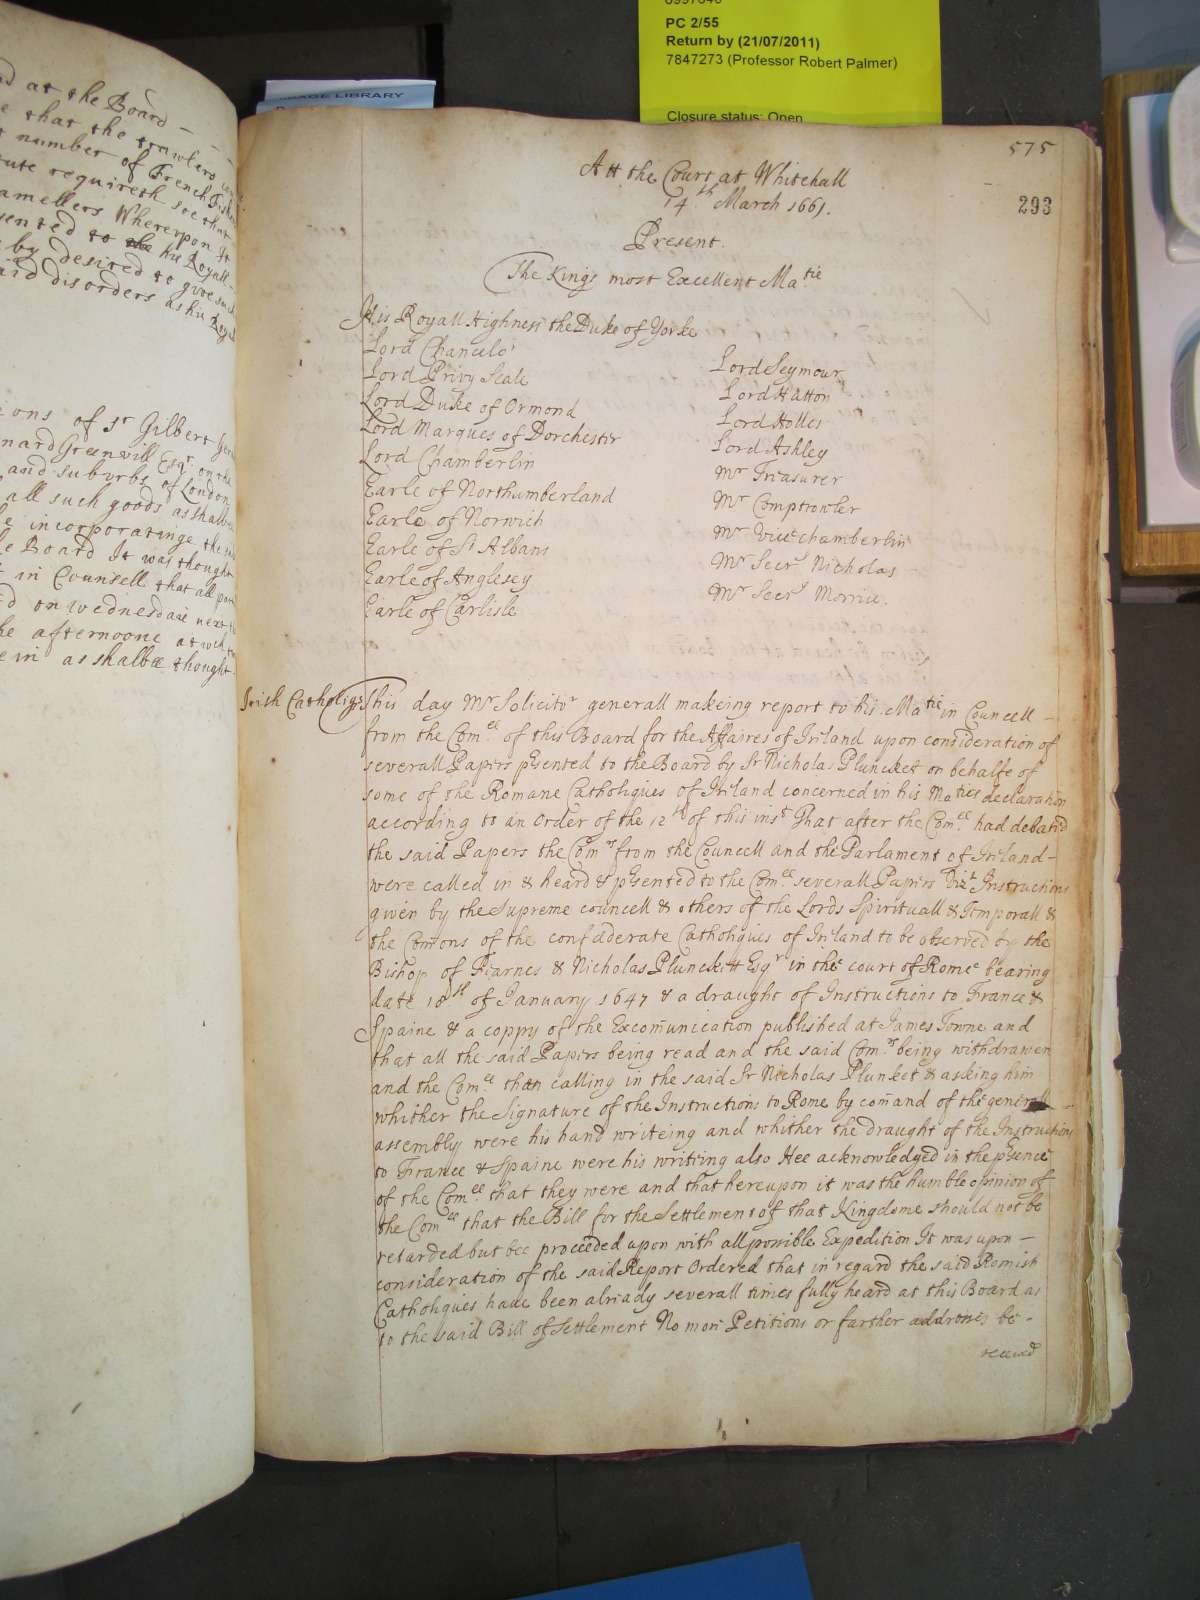 0997040
PC 2/55
Return by (21/07/2011)
7847273 (Professor Robert Palmer)
Closure status: Open
IMAGE LIBRARY
at the Board —
that the trawlers
number of French
requireth soe that
Whereupon It
to the his Royall
by desired to give such
disorders as his Royall
of Sr Gilbert
Greenvill Esqr. on the
and suburbs of London
all such goods as shalbe
incorporatinge the
Board It was thought
in Counsell that all
on wednesdaie next
afternoone at wch
as shalbee thought
575
293
Att the Court at Whitehall
14th March 1661.
Present.
The Kings most Excellent Matie
His Royall Highness the Duke of Yorke
Lord Chancelor
Lord Privy Seale
Lord Duke of Ormond
Lord Marques of Dorchester
Lord Chamberlin
Earle of Northumberland
Earle of Norwich
Earle of St Albans
Earle of Anglesey
Earle of Carlisle
Lord Seymour
Lord Hatton
Lord Holles
Lord Ashley
Mr Treasurer
Mr Comptrowler
Mr Vice chamberlin
Mr Secry Nicholas
Mr Secry Morrice.
Irish Catholiqs
This day Mr Solicitor generall makeing report to his Matie in Councell —
from the Comee. of this Board for the Affaires of Ireland upon consideration of
severall Papers psented to the Board by Sr Nicholas Pluncket on behalfe of
some of the Romane Catholiques of Ireland concerned in his Maties declaration
according to an Order of the 12th of this inst That after the Comee. had debated
the said Papers the Comrs from the Councell and the Parlament of Ireland —
were called in & heard & psented to the Comee. severall Papers vizt Instructions
given by the Supreme councell & others of the Lords Spirituall & Temporall &
the Comons of the confederate Catholiques of Ireland to be observed by the
Bishop of Fearnes & Nicholas Plunckett Esqr in the court of Rome bearing
date 18th of January 1647 & a draught of Instructions to France &
Spaine & a coppy of the Excomunication published at James Towne and
that all the said Papers being read and the said Comrs being withdrawen
and the Comee. then calling in the said Sr Nicholas Plunket & asking him
whither the Signature of the Instructions to Rome by comand of the generall —
assembly were his hand writeing and whither the draught of the Instructions
to France & Spaine were his writting also Hee acknowledged in the psence
of the Comee. that they were and that hereupon it was the humble opinion of
the Comee that the Bill for the Settlement of that Kingdome should not be
retarded but bee proceeded upon with all possible Expedition It was upon —
consideration of the said Report Ordered that in regard the said Romish
Catholiques have been already severall times fully heard at this Board as
to the said Bill of Settlement No more Petitions or farther addresses be -
received